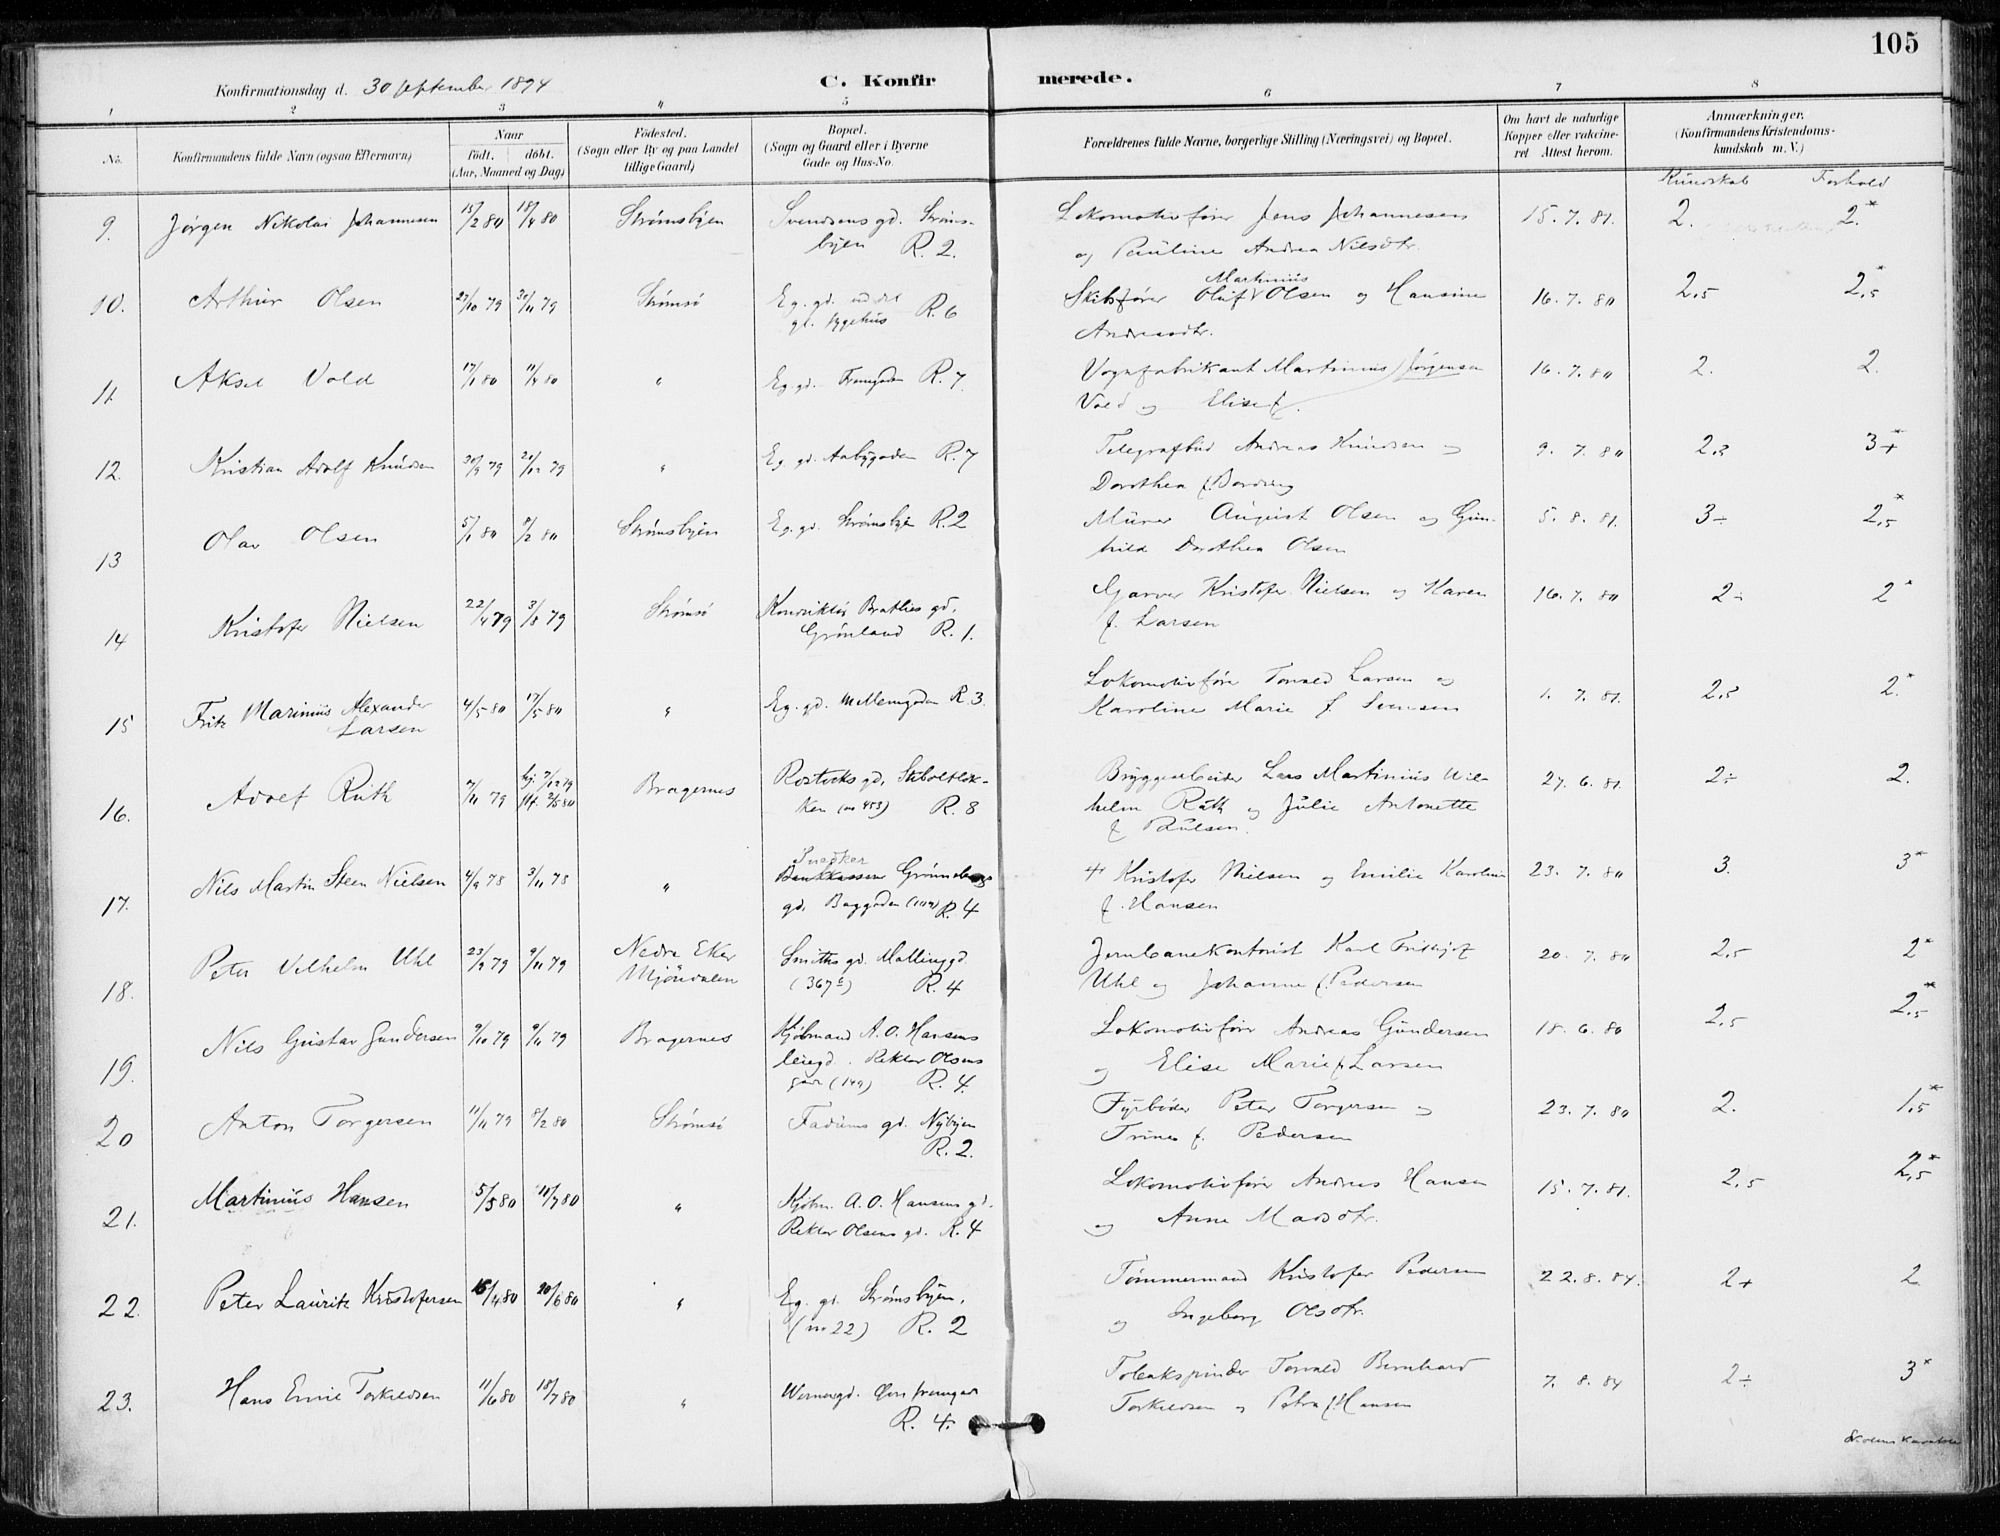 105
Konfirmationsdag d. 30 september 1894
C. Konfirmerede.
1 2 3 4 5 6 7 8
No.
Konfirmandens fulde Navn (ogsaa Efternavn)
Naar
født. døbt.
(Aar, Maaned og Dag)
Fødested.
(Sogn eller By og paa Landet
tillige Gaard)
Bopæl.
(Sogn og Gaard eller i Byerne
Gade og Hus-No.
Forældrenes fulde Navne, borgerlige Stilling (Næringsvei) og Bopæl.
Om havt de naturlige
Kopper eller vakcine-
ret Attest herom.
Anmærkninger.
(Konfirmandens Kristendoms-
kundskab m. V.)
Kundskab Forhold
9. Jørgen Nikolai Johannesen 15/2 80 18/4 80 Strømsbyen Svendsens gd. Strøms- Lokomotivfører Jens Johannesen 15. 7. 81. 2. 2.*
byen R. 2. og Pauline Andrea Nilsdtr.
10. Arthur Olsen 27/10 79 30/11 79 Strømsø Eg. gd. ved det R. 6 Skibsfører Oluf Martinius Olsen og Hansine 16. 7. 80 2,5 2,5*
gl. sygehus Andreasdtr.
11. Aksel Vold 17/1 80 11/4 80 " Eg. gd. Tomtegaden R. 7 Vognfabrikant Martinius Jørgensen 16. 7. 80 2. 2.
Vold og Elise f.
12. Kristian Adolf Knudsen 30/9 79 21/12 79 " Eg. gd. Aabygaden R. 7 Telegrafbud Andreas Knudsen og 9. 7. 80 2,3 3+*
Dorothea f.
13 Olav Olsen 5/1 80 8/2 80 Strømsbyen Eg. gd. Strømsbyen R. 2 Murer August Olsen og Gun- 5. 8. 81. 3÷ 2,5*
hild Dorthea Olsen
14 Kristofer Nielsen 22/4 79 3/8 79 Strømsø Konduktør Bratlies gd. Garver Kristofer Nielsen og Karen 16. 7. 80 2÷ 2*
Grønland R. 1. f. Larsen
15 Fritz Marinius Alexander 4/5 80 17/5 80 " Eg. gd. Mellemgaden R. 3. Lokomotivfører Torvald Larsen og 1. 7. 81. 2,3 2.*
Larsen Karoline Marie f. Svensen
16. Adolf Ruth 7/11 79 hj. 7/12 79 Bragernes Rostocks gd. Skiboltløk- Bryggearbeider Lars Martinius Wil- 27. 6. 81. 2÷ 2.
2/5 80 ken (no 453) R. 8 helm Ruth og Julie Antonette
f. Paulsen.
17. Nils Martin Steen Nielsen 4/9 78 3/11 78 " Snedker Grønnebergs Kristofer Nielsen og Emilie Karoline 23. 7. 80 3. 3*
gd. Baggaden R. 4 f. Hansen
18. Peter Vilhelm Uhl 23/9 79 9/11 79 Nedre Eker Smiths gd. Mallinggd Jernbanekontorist Karl Frithjof 20. 7. 80 2,5 2*
Mjøndalen (367) R. 4 Uhl og Johanne f. Pedersen
19. Nils Gustav Gundersen 9/10 79 9/11 79 Bragernes Kjøbmand A. O. Hansens Lokomotivfører Andreas Gundersen 18. 6. 80 2,5 2,5*
leiegd. Rektor Olsens og Elise Marie f. Larsen
gade (149) R. 4.
20 Anton Torgersen 11/11 79 8/2 80 Strømsø Fadums gd. Nybyen Fyrbøder Peter Torgersen og 23. 7. 80 2. 1,5*
R. 2. Trine f. Pedersen
21. Martinius Hansen 5/5 80 11/7 80 " Kjøbm. A. O. Hansens gd. Lokomotivfører Andreas Hansen 15. 7. 81. 2,5 2,5*
Rektor Olsens gd. R. 4 og Anne Madsdtr.
22. Peter Lauritz Kristofersen 16/4 80 20/6 80 " Eg. gd. Strømsbyen, Tømmermand Kristofer Pedersen 22. 8. 84. 2+ 2
(no 22) R. 2 og Ingeborg Olsdtr.
23. Hans Emil Torkildsen 11/6 80 18/7 80 " Wernersgd. Øvre Tobakspinder Torvald Bernhard 7. 8. 84 2÷ 3*
R. 4. Torkildsen og Petra f. Hansen
Skolens karakter